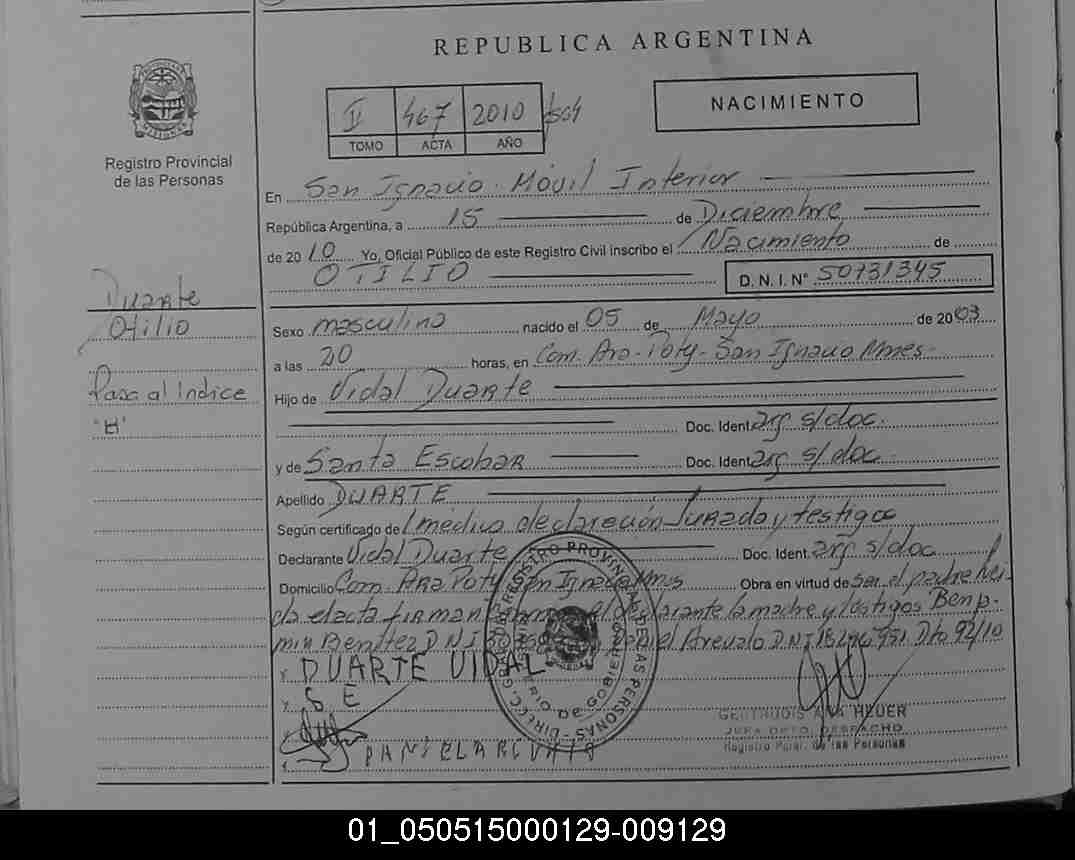 REPUBLICA ARGENTINA
II 467 2010
TOMO ACTA AÑO
NACIMIENTO
Registro Provincial
de las Personas
En San Ignacio. Móvil Interior
República Argentina, a 15 de Diciembre
de 2010 Yo, Oficial Público de este Registro Civil inscribo el Nacimiento de
OTILIO D. N. I. N° 50731345
Duarte
Otilio
Sexo masculino nacido el 05 de Mayo de 2003
a las 20 horas, en Com. Ara-Poty-San Ignacio Mnes-
Pasa al Indice
"H"
Hijo de Vidal Duarte
Doc. Ident. arg s/doc.
y de Santa Escobar Doc. Ident. arg s/doc
Apellido DUARTE
Según certificado de médico declaración Jurada y testigos
Declarante Vidal Duarte Doc. Ident. arg s/doc
Domicilio Com. Ara Poty San Ignacio Mnes Obra en virtud de ser el padre Lei-
da el acta firman el declarante la madre y testigos Benja-
min Benítez D N I Arevalo D.N.I Dto 92/10
DUARTE VIDAL
S E
DANIEL AREVALO
REGISTRO PROVINCIAL DE LAS PERSONAS
GERTRUDIS ANA HEUER
JEFA DPTO. DESPACHO
Registro Pcial. de las Personas
01_050515000129-009129